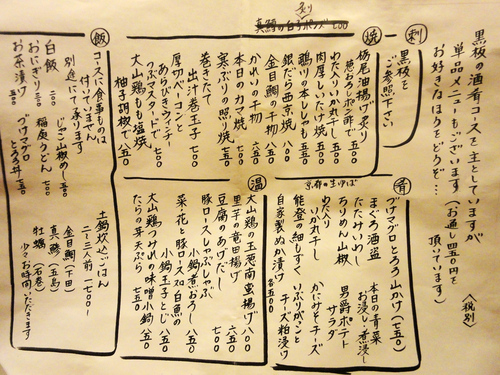 黒板の酒肴コースを主としていますが
単品メニューもございます(お通し四五〇円を
お好きなほうをどうぞ… 頂いています)
〈税別〉
刺
黒板を
ご参照下さい
焼
炙り
真鱈の白子ポンズ 七〇〇
栃尾油揚げ炙り
葱おろしポン酢で 五五〇
わた入りいか丸干し
肉厚しいたけ焼
鵡川の本ししゃも
銀だら西京焼
金目鯛の干物
かれいの干物
本日のカマ焼
寒ぶりの照り焼 七五〇
巻きたて
出汁巻玉子 七〇〇
あらびきウィンナー
つぶマスタードで
厚切ベーコンと
大山鶏もも塩焼
柚子胡椒で 八五〇
飯
コースに食事ものは
付いていません
別途にて承ります
白飯 二〇〇
おにぎり 二五〇
お茶漬け 五〇〇
じゃこ山椒めし 五〇〇
稲庭うどん 七〇〇
づけマグロ
とろろ丼
肴
京都の生ゆば
づけマグロとろろ山かけ(七五〇)
まぐろ酒盗
たたみいわし
ちりめん山椒
わた入り
いか丸干し
能登の細もずく
自家製ぬか漬け
本日の青菜
お浸し・煮浸し
男爵ポテト
サラダ
かにみそチーズ
いぶりがっこと
チーズ粕漬け
各五〇〇
温
大山鶏の玉葱南蛮揚げ 八〇〇
里芋の竜田揚げ 六五〇
豆腐のあげだし 七〇〇
豚ロースしゃぶしゃぶ
小鍋煮おろし 八五〇
菜花と豚ロースor白魚の
小鍋玉子とじ 八五〇
大山鶏つみれの味噌小鍋 八五〇
たらの芽天ぷら 七五〇
土鍋炊込ごはん
二~三人前 一七〇〇~
金目鯛(下田)
真鯵(五島)
牡蠣(石巻)
少々お時間いただきます